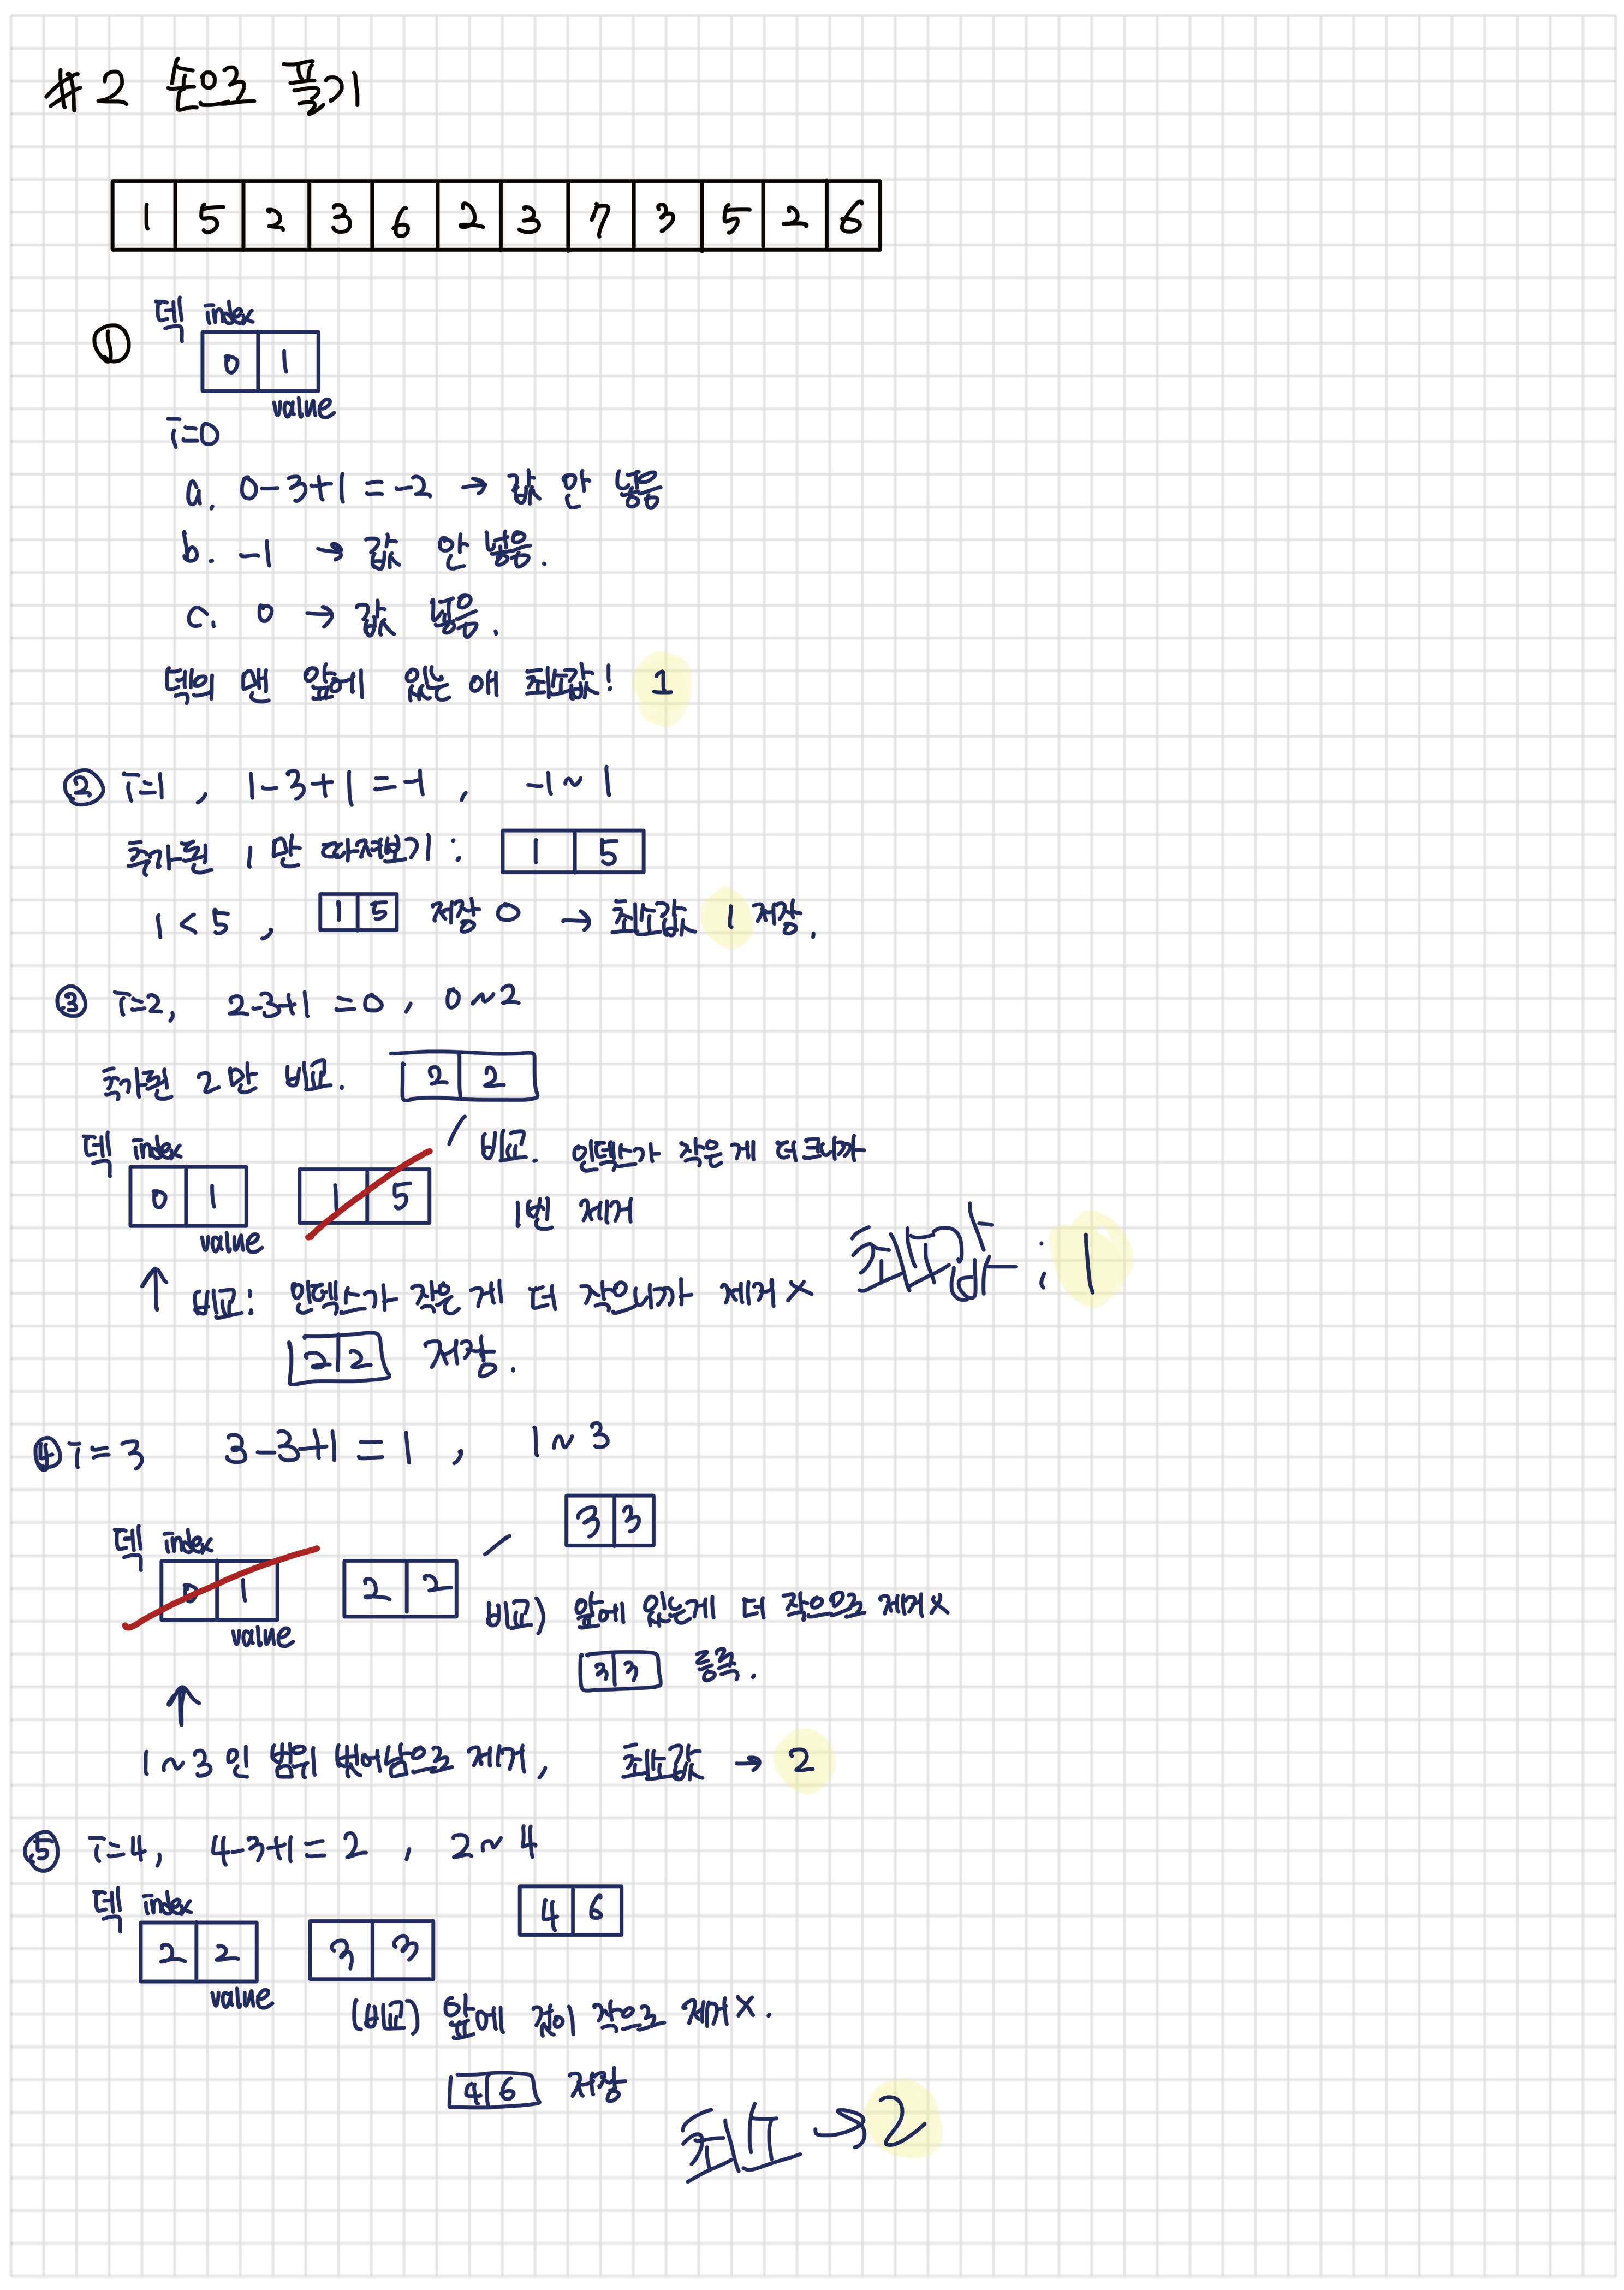 #2 손으로 풀기
1 5 2 3 6 2 3 7 3 5 2 6
덱 index
① 0 1
value
i=0
a. 0-3+1 = -2 → 값 안 넣음
b. -1 → 값 안 넣음.
c. 0 → 값 넣음.
덱의 맨 앞에 있는 애 최소값! 1
② i=1, 1-3+1 = -1, -1~1
추가된 1만 따져보기: 1 5
1 < 5, 1 5 저장 O → 최소값 1 저장.
③ i=2, 2-3+1 = 0, 0~2
추가된 2만 비교. 2 2
덱 index
0 1 1 5
value
비교. 인덱스가 작은 게 더 크니까
1번 제거
↑ 비교! 인덱스가 작은 게 더 작으니까 제거 x
최소값 : 1
2 2 저장.
④ i=3 3-3+1 = 1, 1~3
3 3
덱 index
0 1 2 2
value
비교) 앞에 있는게 더 작으므로 제거x
3 3 등록.
↑
1~3인 범위 벗어남으로 제거, 최소값 → 2
⑤ i=4, 4-3+1 = 2, 2~4
4 6
덱 index
2 2 3 3
value
(비교) 앞에 것이 작으로 제거 X.
4 6 저장
최소 → 2